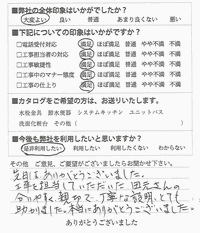 ■弊社の全体印象はいかがでしたか？
大変よい 良い 普通 あまり良くない 悪い
■下記についての印象はいかがですか？
□電話受付対応 満足 ほぼ満足 普通 やや不満 不満
□工事担当者の対応 満足 ほぼ満足 普通 やや不満 不満
□工事敏速性 満足 ほぼ満足 普通 やや不満 不満
□工事中のマナー態度 満足 ほぼ満足 普通 やや不満 不満
□工事の仕上り 満足 ほぼ満足 普通 やや不満 不満
■カタログをご希望の方は、お送りいたします。
水栓金具 節水便器 システムキッチン ユニットバス
洗面化粧台 その他（ ）
■今後も弊社を利用したいと思いますか？
是非利用したい 利用したい 利用したくない わからない
その他 ご意見、ご要望がございましたらお聞かせ下さい。
先日はありがとうございました。
工事を担当していただいた さんの
分りやすく、親切で、丁寧な説明、とても
助かりました。本当にありがとうございました。
ありがとうございました